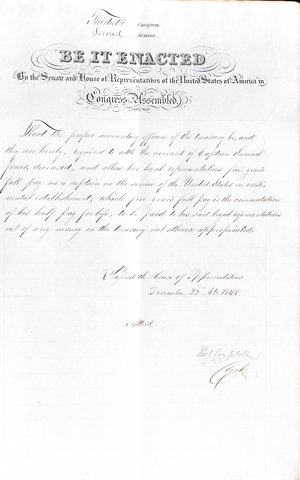 Thirtieth Congress,
Second Session.
BE IT ENACTED
By the Senate and House of Representatives of the United States of America in
Congress Assembled,
That the proper accounting officers of the treasury be, and
they are hereby, required to settle the account of Captain Samuel
Jones, deceased, and allow his legal representatives five years
full pay as a captain in the service of the United States on conti-
nental establishment; which five years full pay is the commutation
of his half pay for life; to be paid to his said legal representatives
out of any money in the treasury not otherwise appropriated.
Passed the House of Representatives
December 22d AD. 1848.
Attest,
Campbell
Clerk